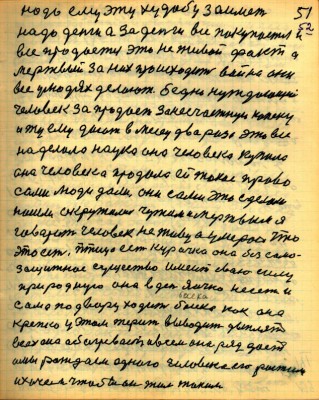 51
52
надо ему эту худобу займет
надо деньга За деньги все покупается и
все продается это не живой факт а
мертвый За них происходит война они
все в людях делают. Бедны нуждающий
человек За продает За несчастную копейку
и ту ему дают в месяц два раза Это все
наделала наука она человека купила
она человека продала Ей такое право
сами люди дали они сами это сделали
нашим окружили чужим и мертвым я
говорят человек не живу а умераю Что
это есть. Птица есть курочка она без само-
защитное существо имеет свою силу
природную она в ден яичко несет и
сама по двору ходит как она
крепко у этом терпит выводит цыплят
всех она обогревает и всем она ряд дает
а мы раждаем одного человека его растим
и хочем чтобы он жил таким